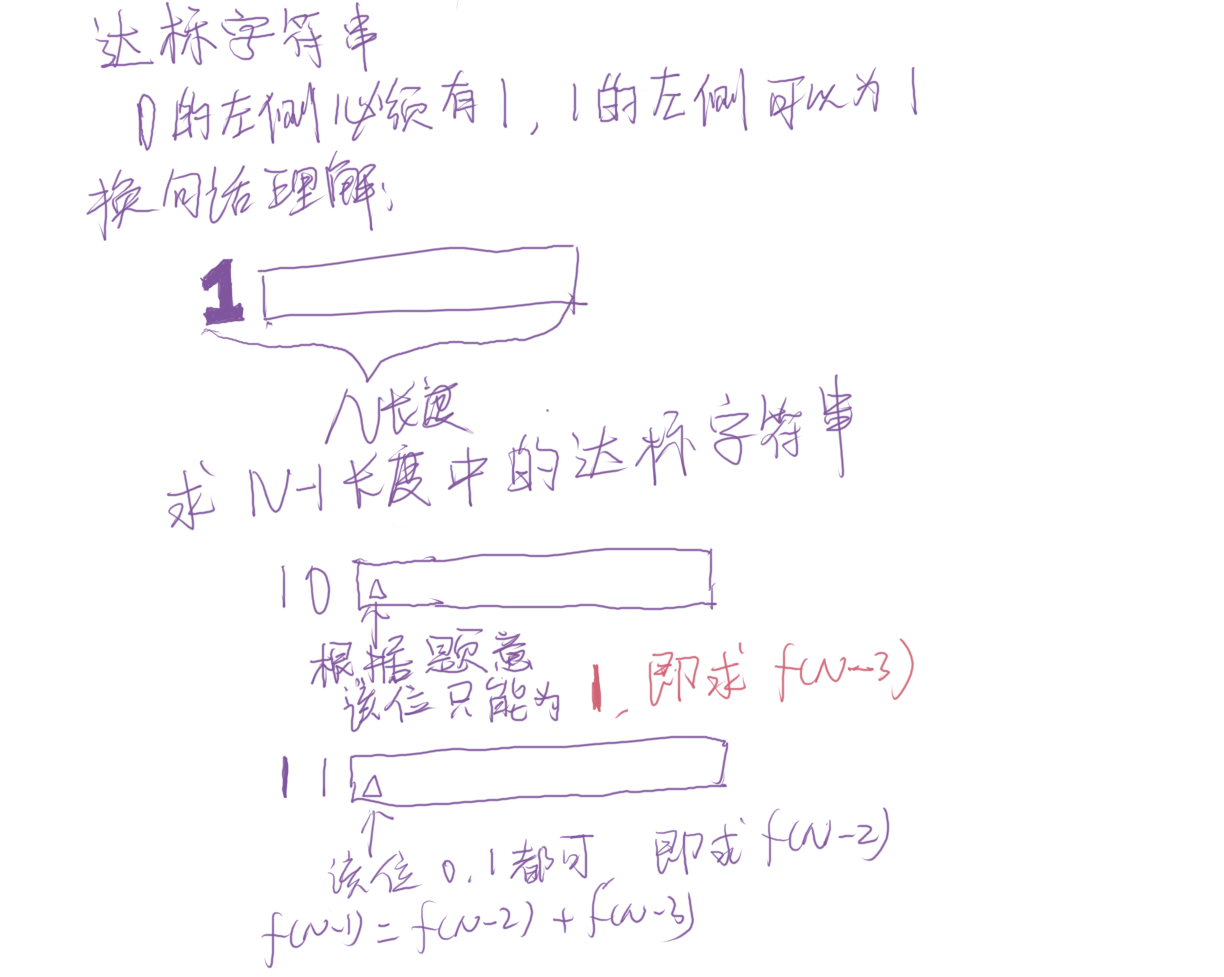 达标字符串
0的左侧必须有1, 1的左侧可以为1
换句话理解:
1
N长度
求N-1长度中的达标字符串
10
根据题意
该位只能为1, 即求 f(N-3)
11
该位 0.1都可 即求 f(N-2)
f(N-1) = f(N-2) + f(N-3)